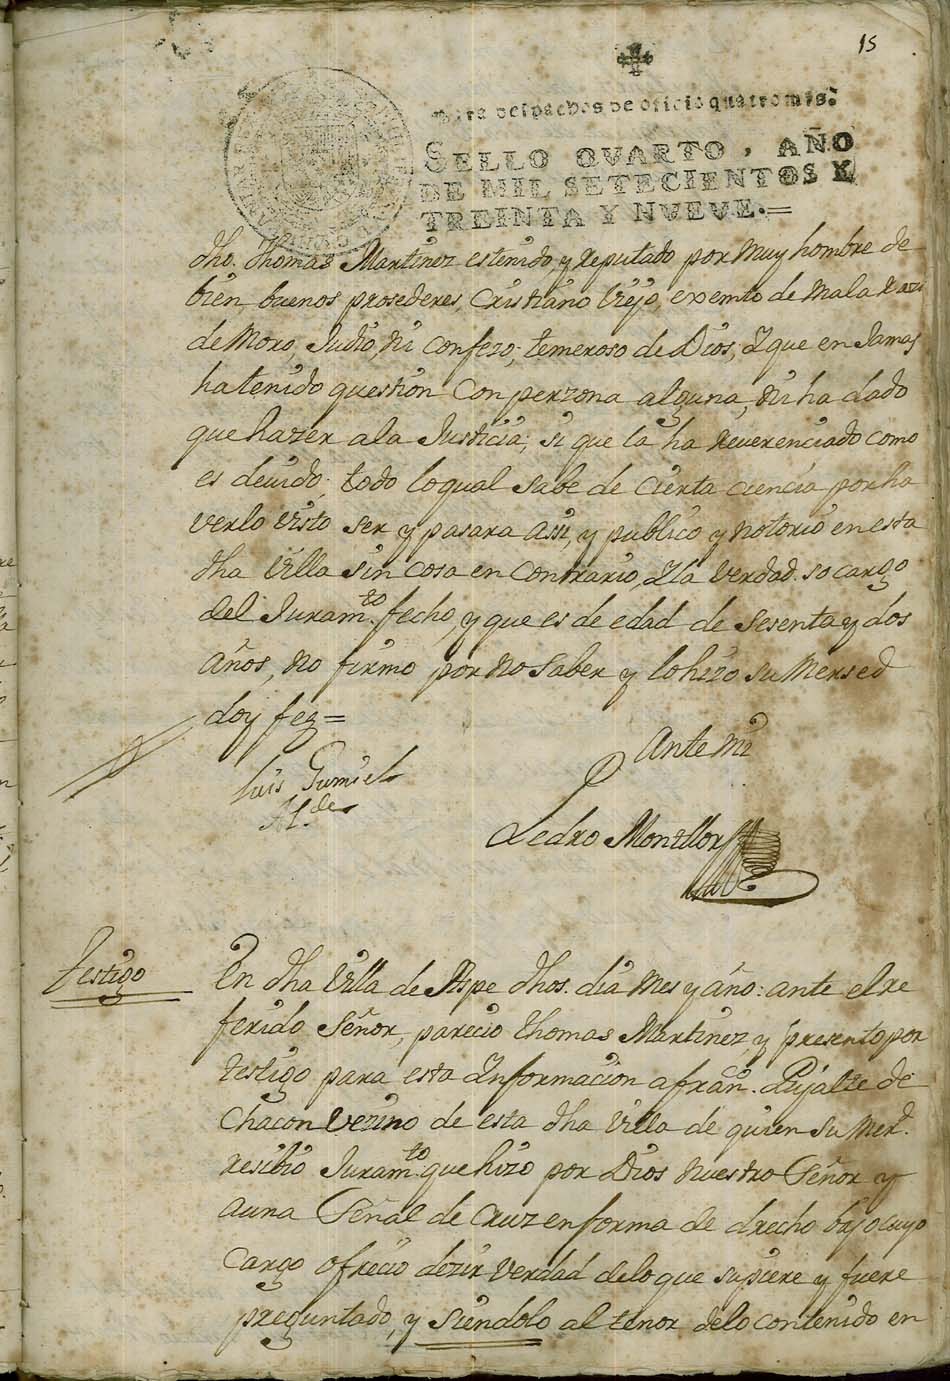 15
Para despachos de oficio quatro mrs.
SELLO QVARTO, AÑO
DE MIL SETECIENTOS Y
TREINTA Y NVEVE.=
dho. Thomas Martinez es tenido, y Reputado por muy hombre de
bien, buenos prosederes, Cristiano Viejo, exemto de Mala Raza
de Moro, Judio, ni confezo, temeroso de Dios, Y que en Jamas
ha tenido question Con perzona alguna, ni ha dado
que hazer ala Justicia, si que la ha Reuerenciado como
es deuido, todo lo qual sabe de Cierta ciencia, por ha
verlo Visto ser y pasara assi, y publico y notorio en esta
dha Villa sin cosa en Contrario, Y la Verdad so cargo
del Juram.to fecho, y que es de edad de Sesenta y dos
Años, no firmo por no Saber y lo hizo su Mersed
doy fee=
Ante Mi
Luis Gumiel
Al.de
Pedro Montllor
Testigo
En dha Villa de Aspe dhos. dia Mes y año: ante el re
ferido Señor, parecio Thomas Martinez y presento por
testigo para esta Informacion a fran.co Pujalte de
Chacon Vezino de esta dha Villa de quien su Mrd.
resibio Juram.to que hizo por Dios Nuestro Señor y
a una Señal de Cruz en forma de drecho bajo cuyo
Cargo ofrecio dezir Verdad delo que supiere y fuere
preguntado, y siendolo al tenor delo contenido en